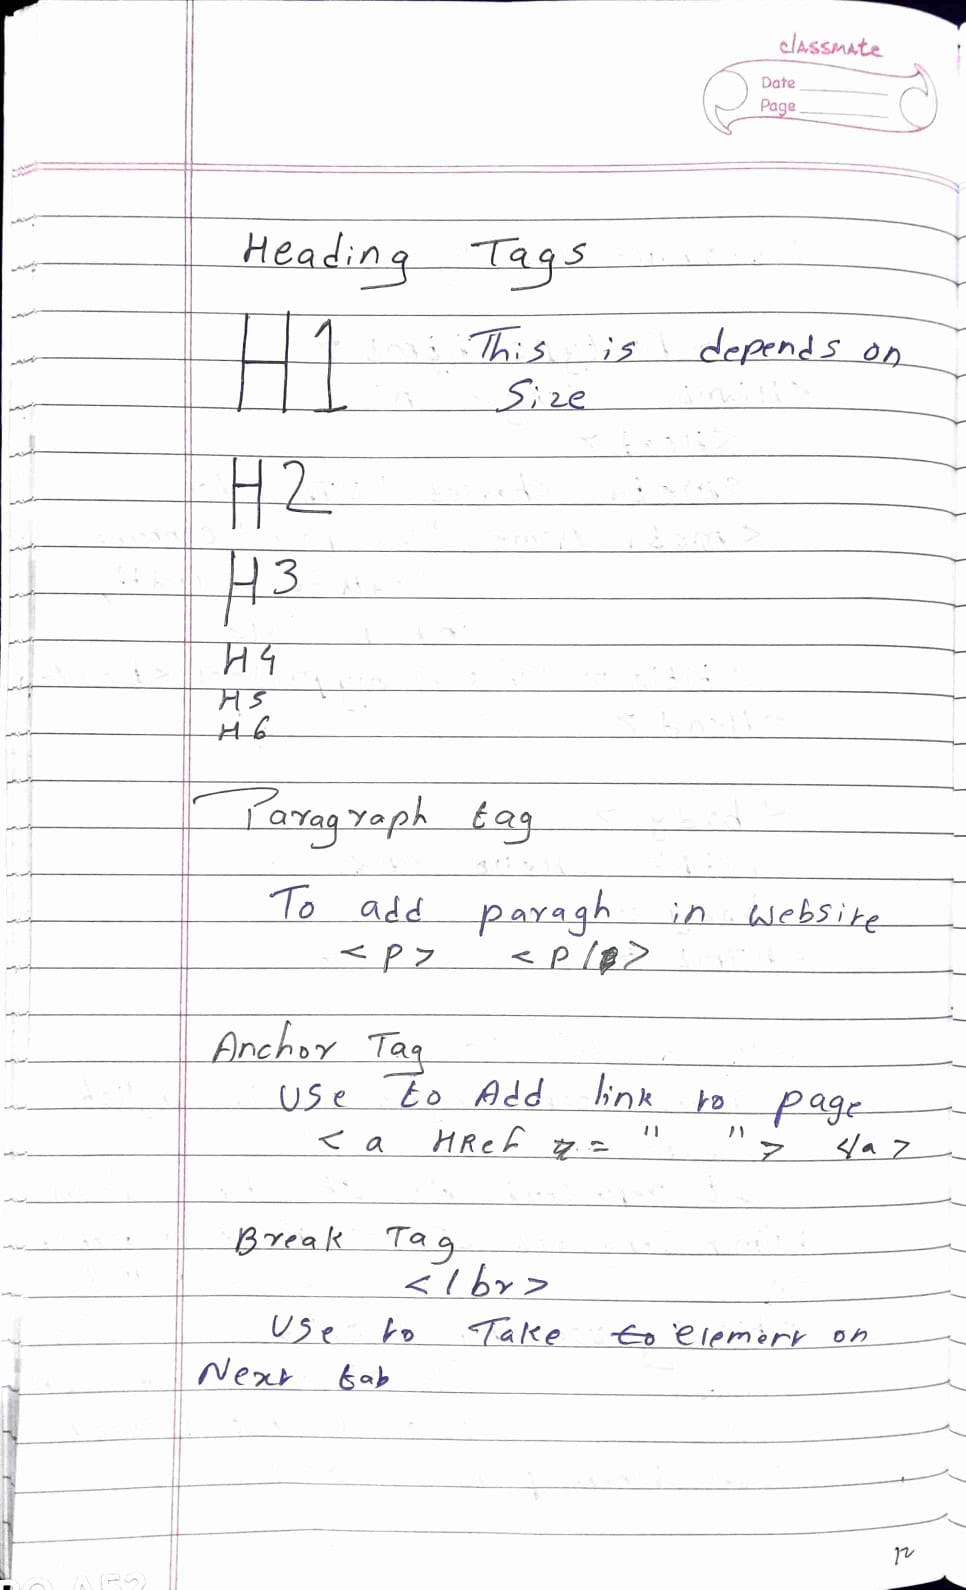 classmate
Date
Page
Heading Tags
H1 This is depends on
Size
H2
H3
H4
H5
H6
Paragraph tag
To add paragh in website
<p> <p/>
Anchor Tag
Use to Add link to page
<a HRef = " "> </a>
Break Tag
</br>
Use to Take to element on
Next tab